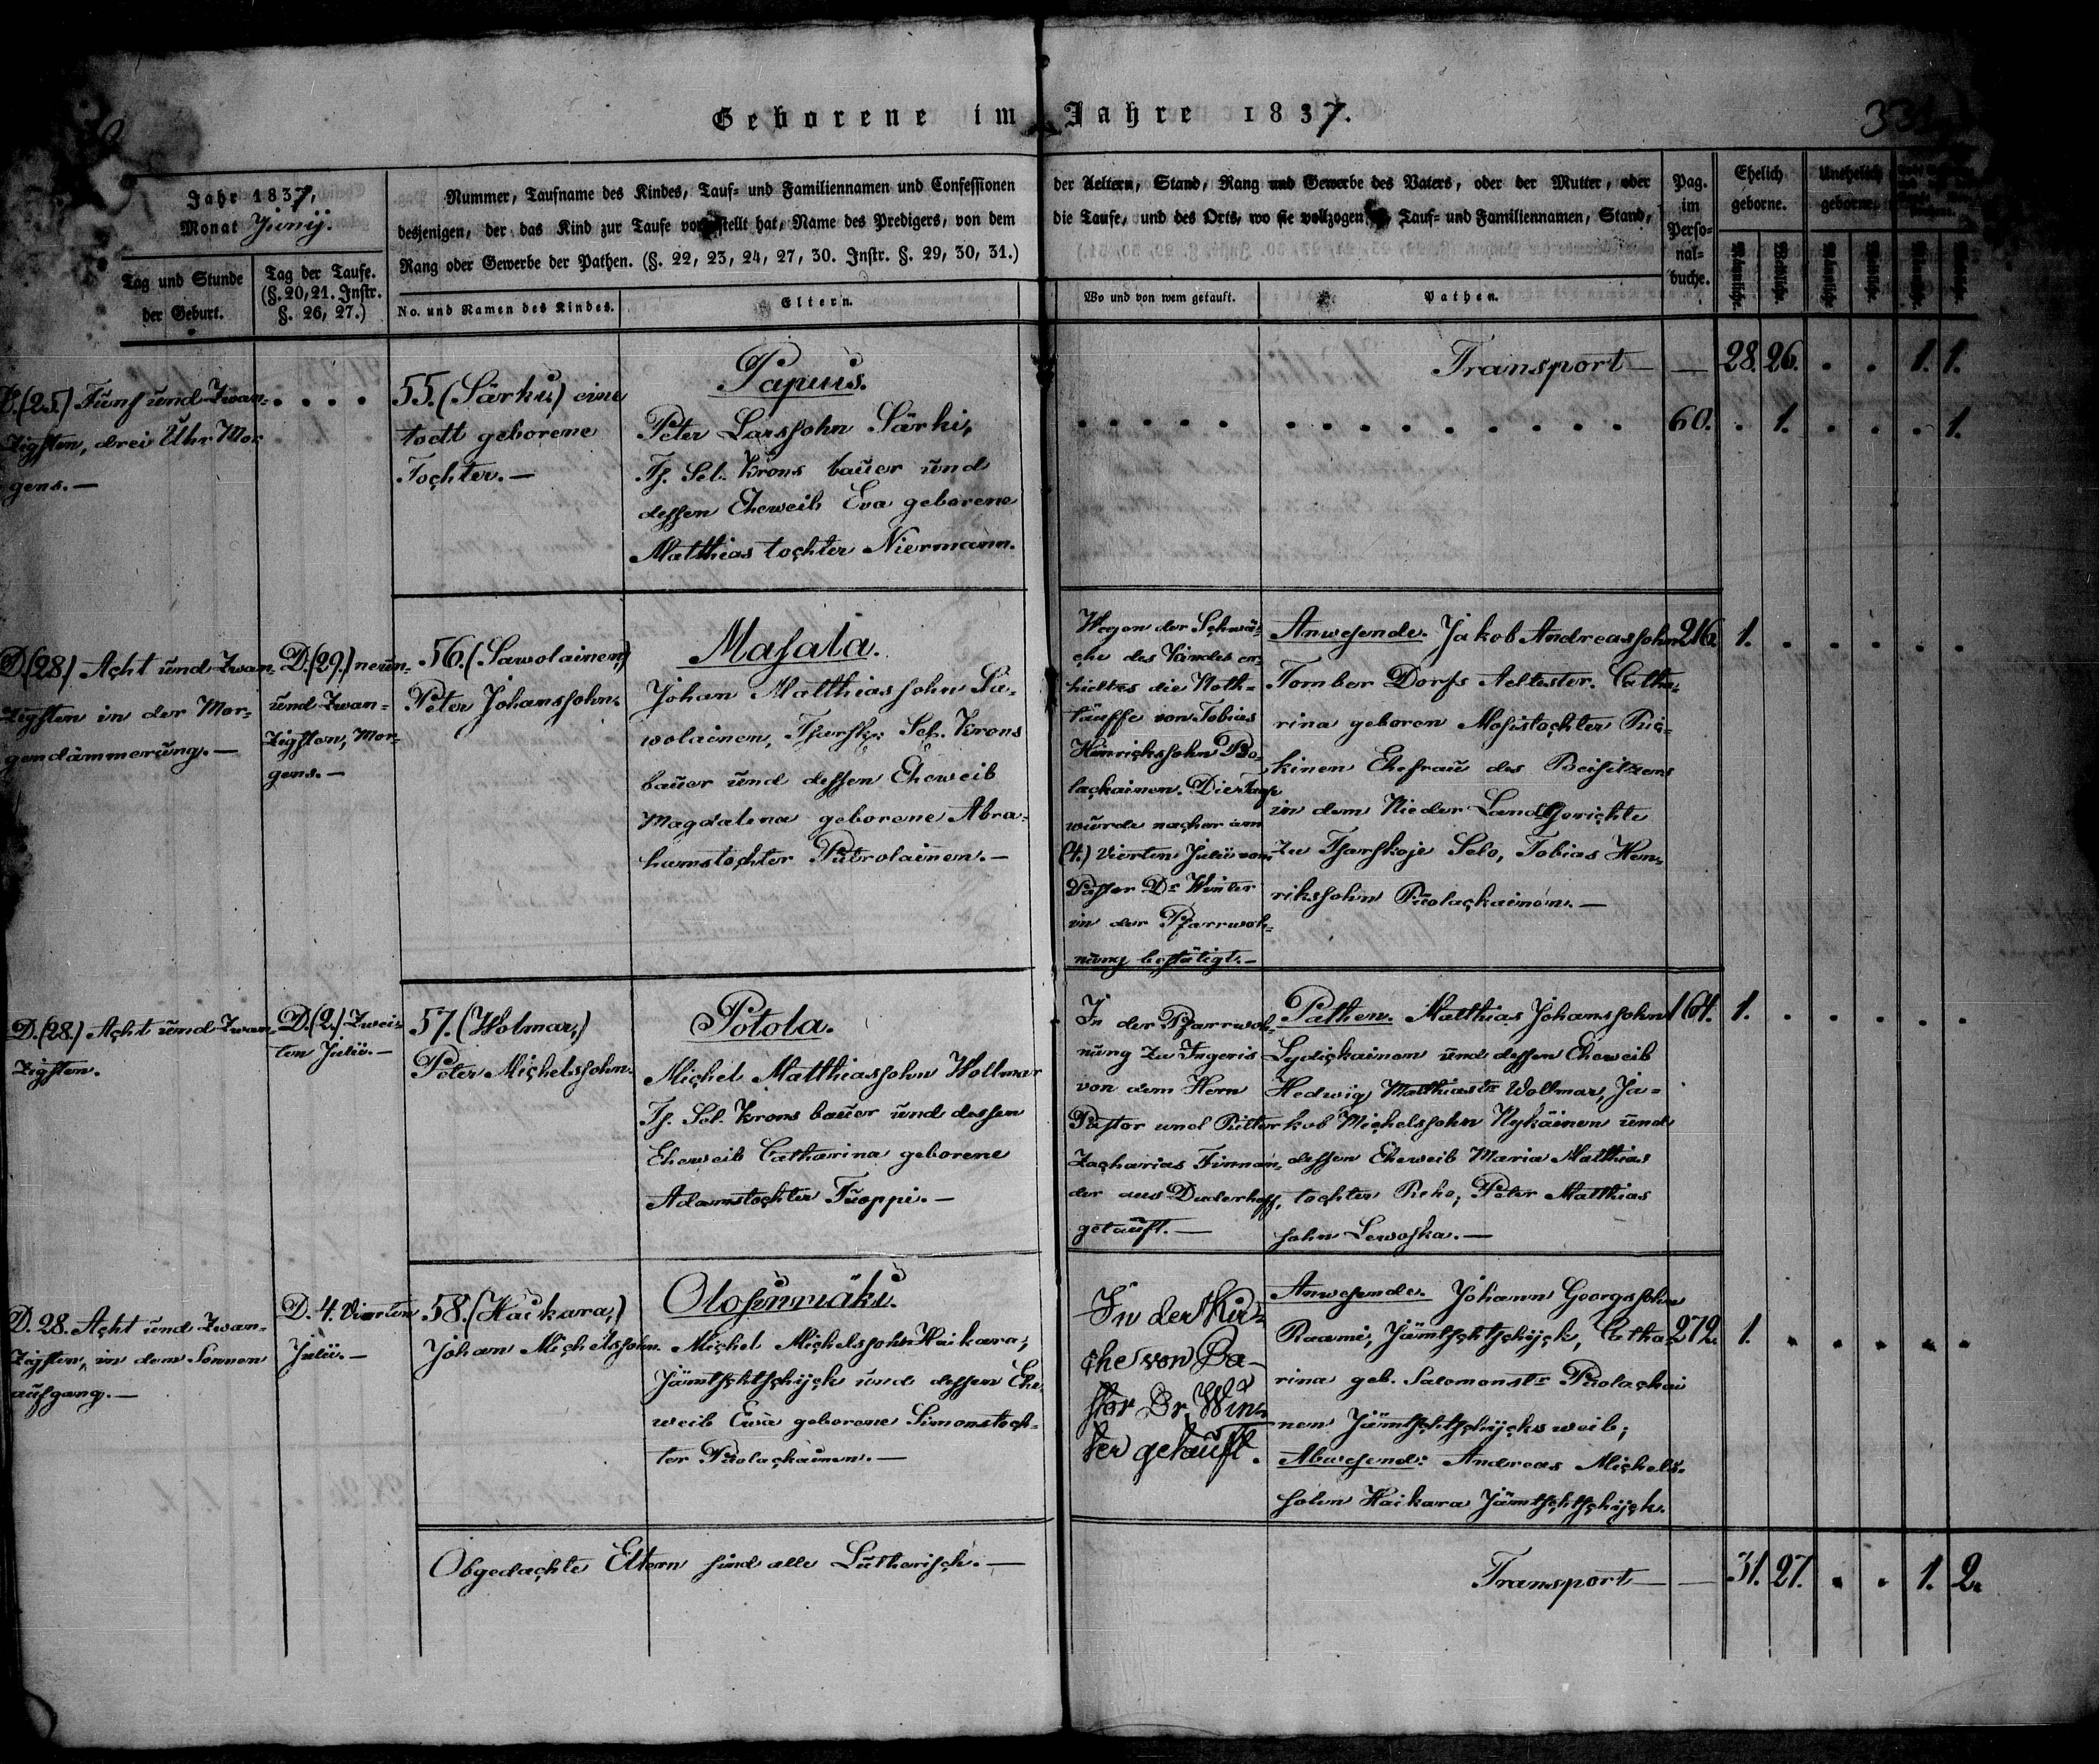 Geborene im Jahre 1837.
Jahr 1837,
Monat Junij.
Tag und Stunde
der Geburt.
Tag der Taufe.
(§. 20, 21. Instr.
§. 26, 27.)
Nummer, Taufname des Kindes, Tauf- und Familiennamen und Confessionen
desjenigen, der das Kind zur Taufe vorgestellt hat, Name des Predigers, von dem
Rang oder Gewerbe der Pathen. (§. 22, 23, 24, 27, 30. Instr. §. 29, 30, 31.)
No. und Namen des Kindes.
Eltern.
der Aeltern, Stand, Rang und Gewerbe des Vaters, oder der Mutter, oder
die Taufe, und des Orts, wo sie vollzogen Tauf- und Familiennamen, Stand,
Wo und von wem getauft.
Pathen.
Pag.
im
Perso-
nal-
buche.
Ehelich
geborne.
Unehelich
geborne.
Männliche.
Weibliche.
Männliche
Transport — — 28. 26. . . 1. 1.
D. (25.) Fünf und Zwan-
zigsten, drei Uhr Mor-
gens. —
. . . .
55. (Särki) eine
todt geborene
Tochter. —
Papus.
Peter Larssohn Särki,
Tf. Sel. Krons bauer und
dessen Eheweib Eva geborene
Matthias tochter Niermann.
. . . . . . . . . . . . . .
60. . 1. . . . 1.
D. (28.) Acht und Zwan-
zigsten in der Mor-
gendämmerung. —
D. (29.) neun-
und Zwan-
zigsten, Mor-
gens. —
56. (Sawolainen,)
Peter Johanssohn.
Masala.
Johan Matthiassohn Sa-
wolainen, Tsarsk. Sel. Krons
bauer und dessen Eheweib
Magdalena geborene Abra-
hamstochter Putrolainen. —
Wegen der Schwä-
che des Kindes er-
hielt es die Noth-
tauffe von Tobias
Hinrichssohn Puo-
lackainen. Die Taufe
wurde nacher am
(4.) vierten Julii vom
Pastor Dr Winter
in der Pfarrwoh-
nung bestätigt. —
Anwesende. Jakob Andreassohn
Tomber Dorfs Aeltester. Catha-
rina geboren Mosistochter Puu-
kinen Ehefrau des Beisitzers
in dem Nieder Land Gerichte
zu Tsarskoje Selo, Tobias Hen-
rikssohn Puolackainen. —
216. 1. . . . . .
D. (28.) Acht und Zwan-
zigsten.
D. (2.) Zwei-
ten Julii. —
57. (Wolmar,)
Peter Michelssohn.
Potola.
Michel Matthiassohn Wollmar
Tf. Sel. Krons bauer und dessen
Eheweib Catharina geborene
Adamstochter Tuoppi. —
In der Pfarrwoh-
nung zu Ingeris
von dem Herrn
Pastor und Ritter
Zacharias Finnan-
der aus Duderhoff,
getauft. —
Pathen. Matthias Johanssohn
Lydickainen und dessen Eheweib
Hedwig Matthiastr Wollmar, Ja-
kob Michelssohn Nykäinen und
dessen Eheweib Maria Matthias
tochter Reho, Peter Matthias
sohn Lewoska. —
164. 1. . . . . .
D. 28. Acht und Zwan-
zigsten, in dem Sonnen
aufgang. —
D. 4. Vierten
Julii. —
58. (Haikara,)
Johan Michelssohn.
Olosinmäki.
Michel Michelssohn Haikara,
Jämtschtschijck und dessen Ehe-
weib Ewa geborene Simonstoch-
ter Puolackainen. —
In der Kir-
che von Pa-
stor Dr. Win-
ter getauft.
Anwesende. Johann Georgssohn
Raami, Jämtschtschijck, Catha-
rina geb. Salomonstr Puolackai
nen Jämtschtschijcks weib;
Abwesend: Andreas Michels-
sohn Haikara Jämtschtschijck.
272. 1. . . . . .
Obgedachte Eltern sind alle Lutherisch. —
Transport — — 31. 27. . . 1. 2.